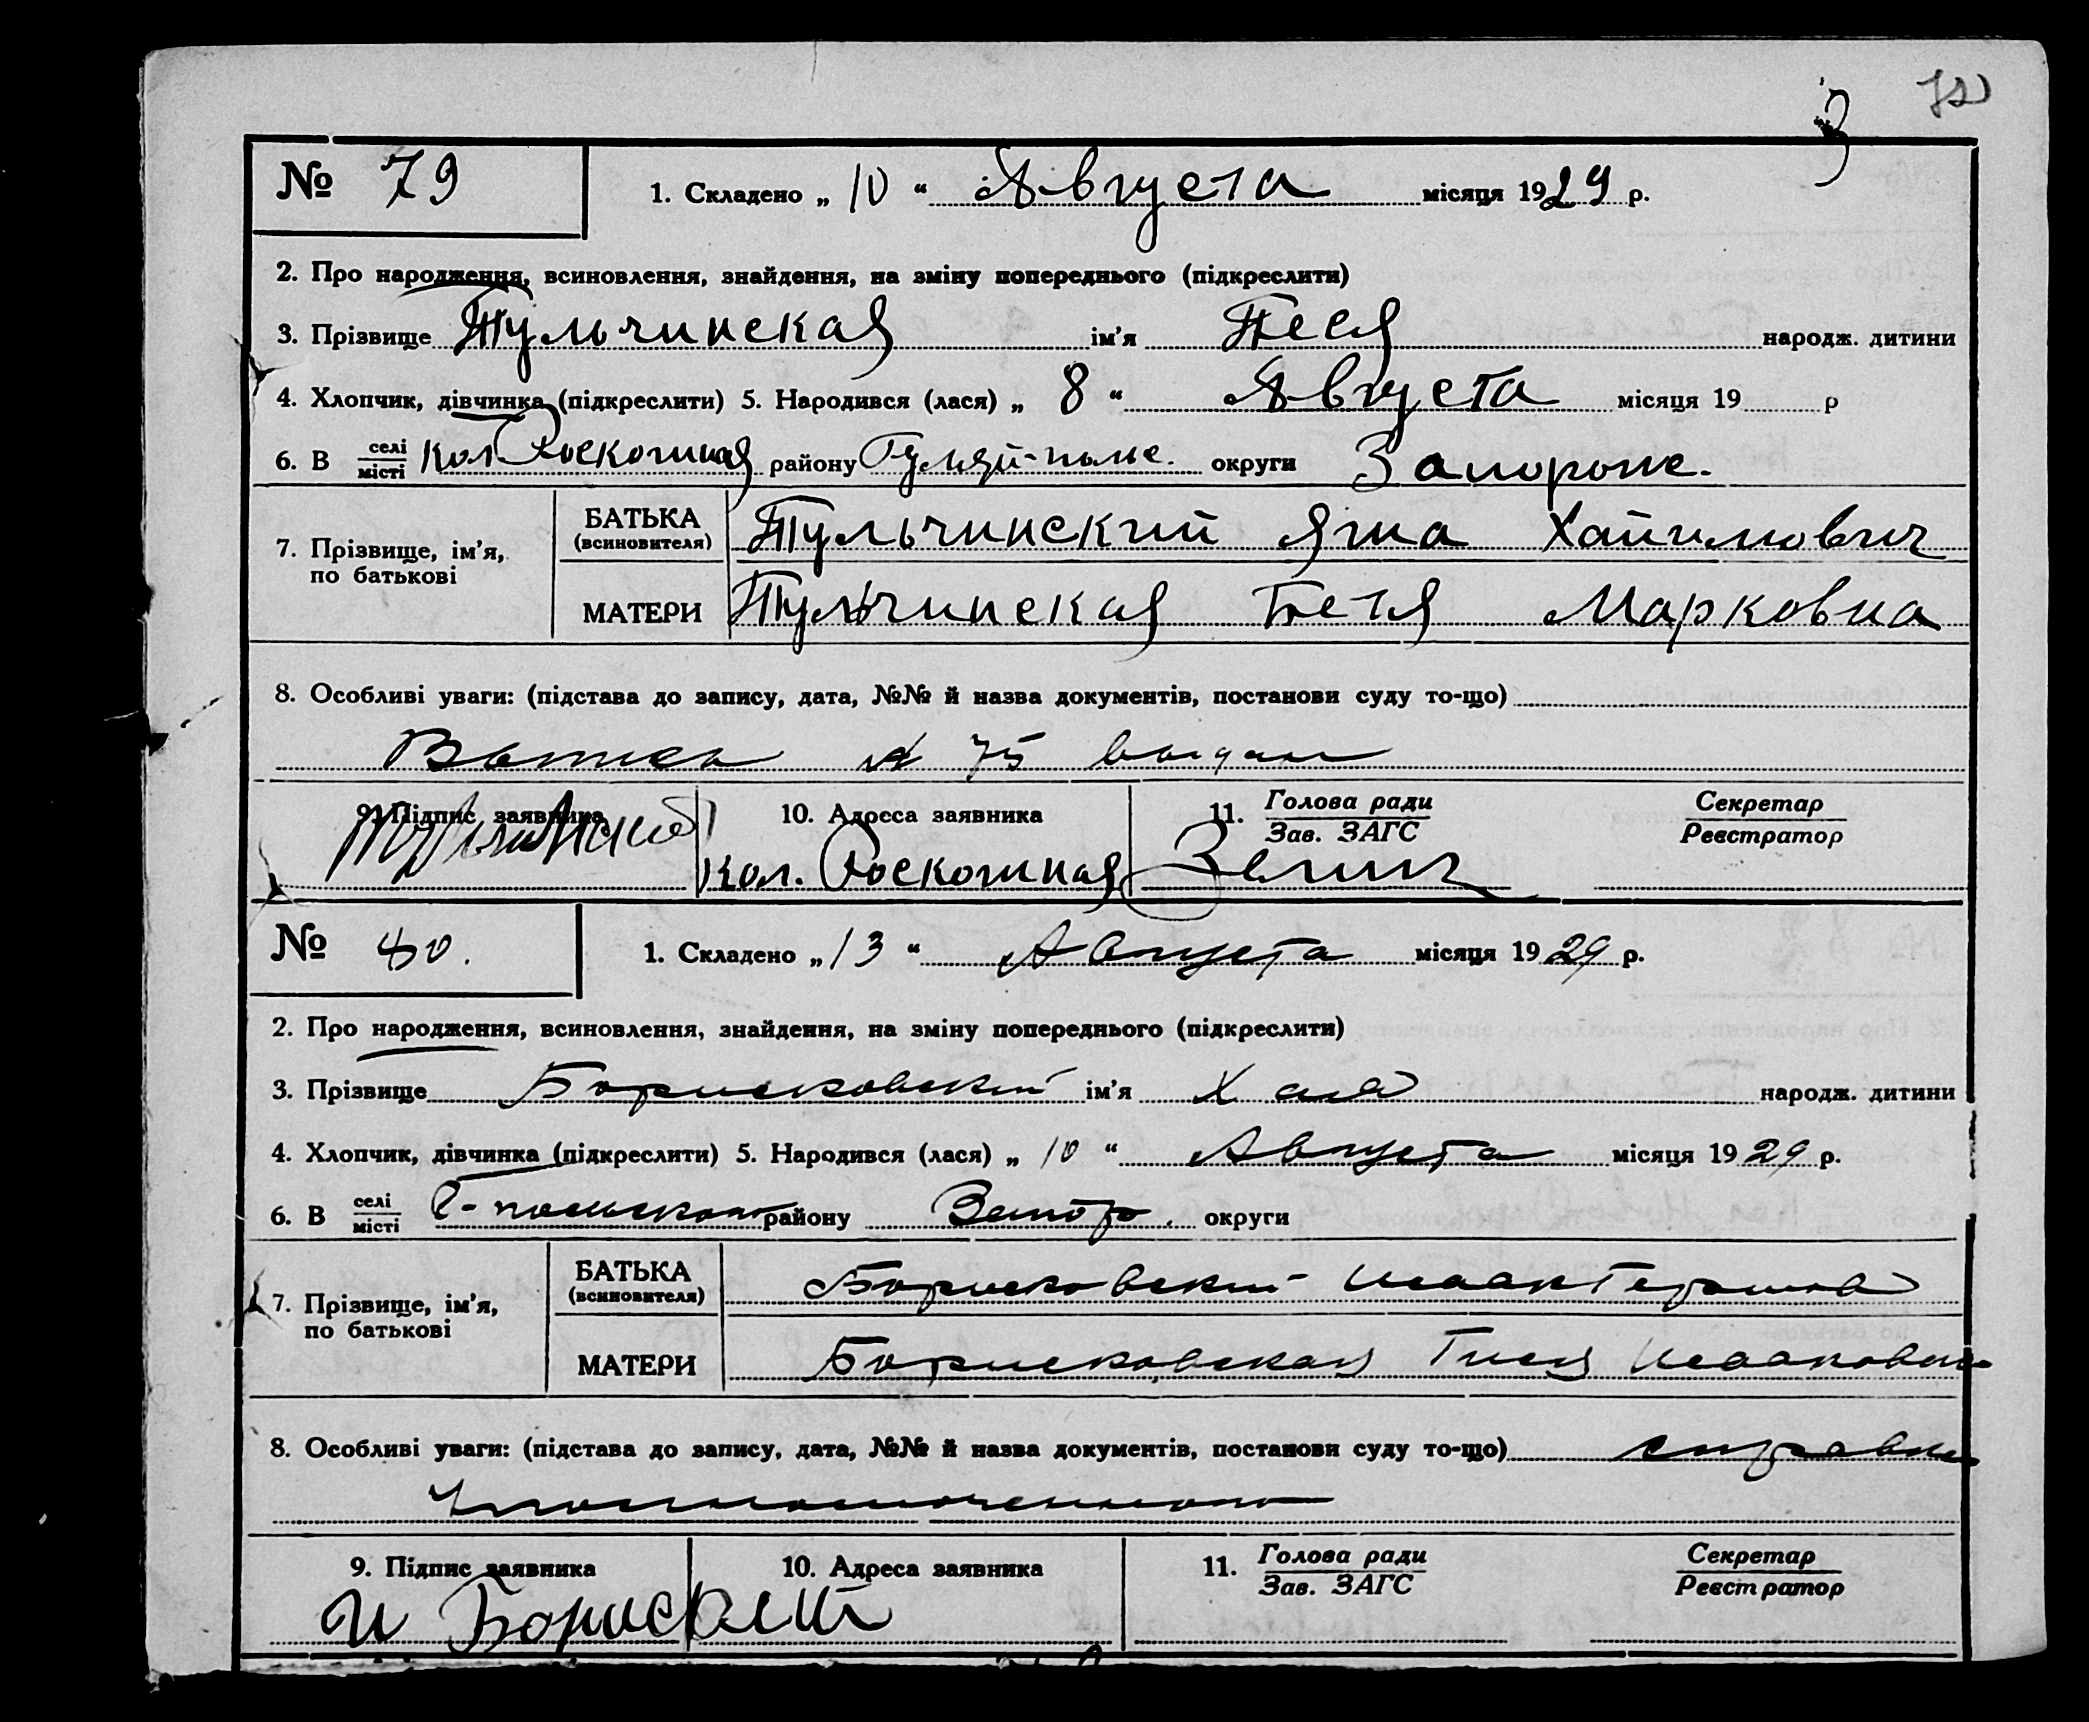 № 79 1. Складено „ 10 “ Августа місяця 1929 р.
2. Про народження, всиновлення, знайдення, на зміну попереднього (підкреслити)
3. Прізвище Тульчинская ім'я Песя народж. дитини
4. Хлопчик, дівчинка (підкреслити) 5. Народився (лася) „ 8 “ Августа місяця 19 р
6. В селі/місті Кол. Роскошная району Гуляй-поле. округи Запорож.
7. Прізвище, ім'я, по батькові
БАТЬКА (всиновителя) Тульчинский Яша Хаймович
МАТЕРИ Тульчинская Бетя Марковна
8. Особливі уваги: (підстава до запису, дата, №№ й назва документів, постанови суду то-що)
Выпись № 75 выдан
9. Підпис заявника 10. Адреса заявника 11. Голова ради/Зав. ЗАГС Секретар/Реєстратор
Кол. Роскошная
№ 80. 1. Складено „ 13 “ Августа місяця 1929 р.
2. Про народження, всиновлення, знайдення, на зміну попереднього (підкреслити)
3. Прізвище Борисковский ім'я Хая народж. дитини
4. Хлопчик, дівчинка (підкреслити) 5. Народився (лася) „ 10 “ Августа місяця 1929 р.
6. В селі/місті Г-польского району Запор. округи
7. Прізвище, ім'я, по батькові
БАТЬКА (всиновителя) Борисковский Исаак Гершов
МАТЕРИ Борисковская Гися Исааковна
8. Особливі уваги: (підстава до запису, дата, №№ й назва документів, постанови суду то-що) справка
Уполномоченного
9. Підпис заявника 10. Адреса заявника 11. Голова ради/Зав. ЗАГС Секретар/Реєстратор
И Борис